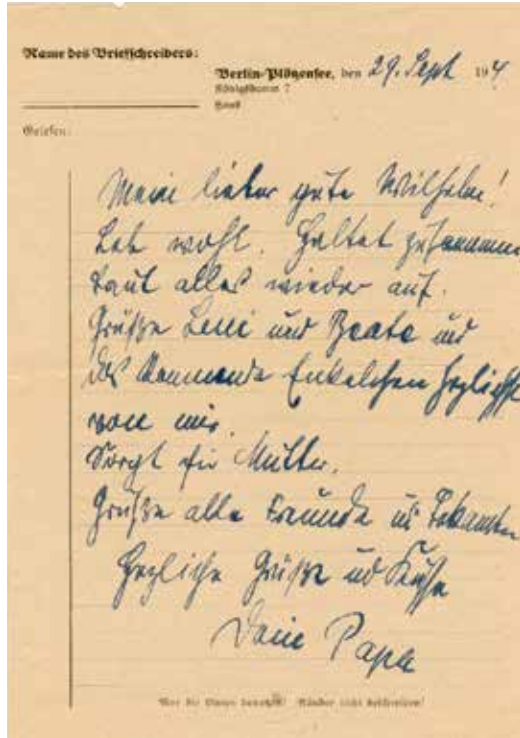 Name des Briefschreibers:
Berlin-Plötzensee, den 29. Sept 194
Königsdamm 7
Haus
Gelesen:
Mein lieber gute Wilhelm!
Leb wohl. Haltet zusammen
baut alles wieder auf.
Grüße Leni und Beate und
das kommende Enkelchen herzlichst
von mir.
Sorgt für Mutter.
Grüße alle Freunde u. Bekannten
Herzliche Grüße und Küsse
Dein Papa
Nur die Linien benutzen! Ränder nicht beschreiben!